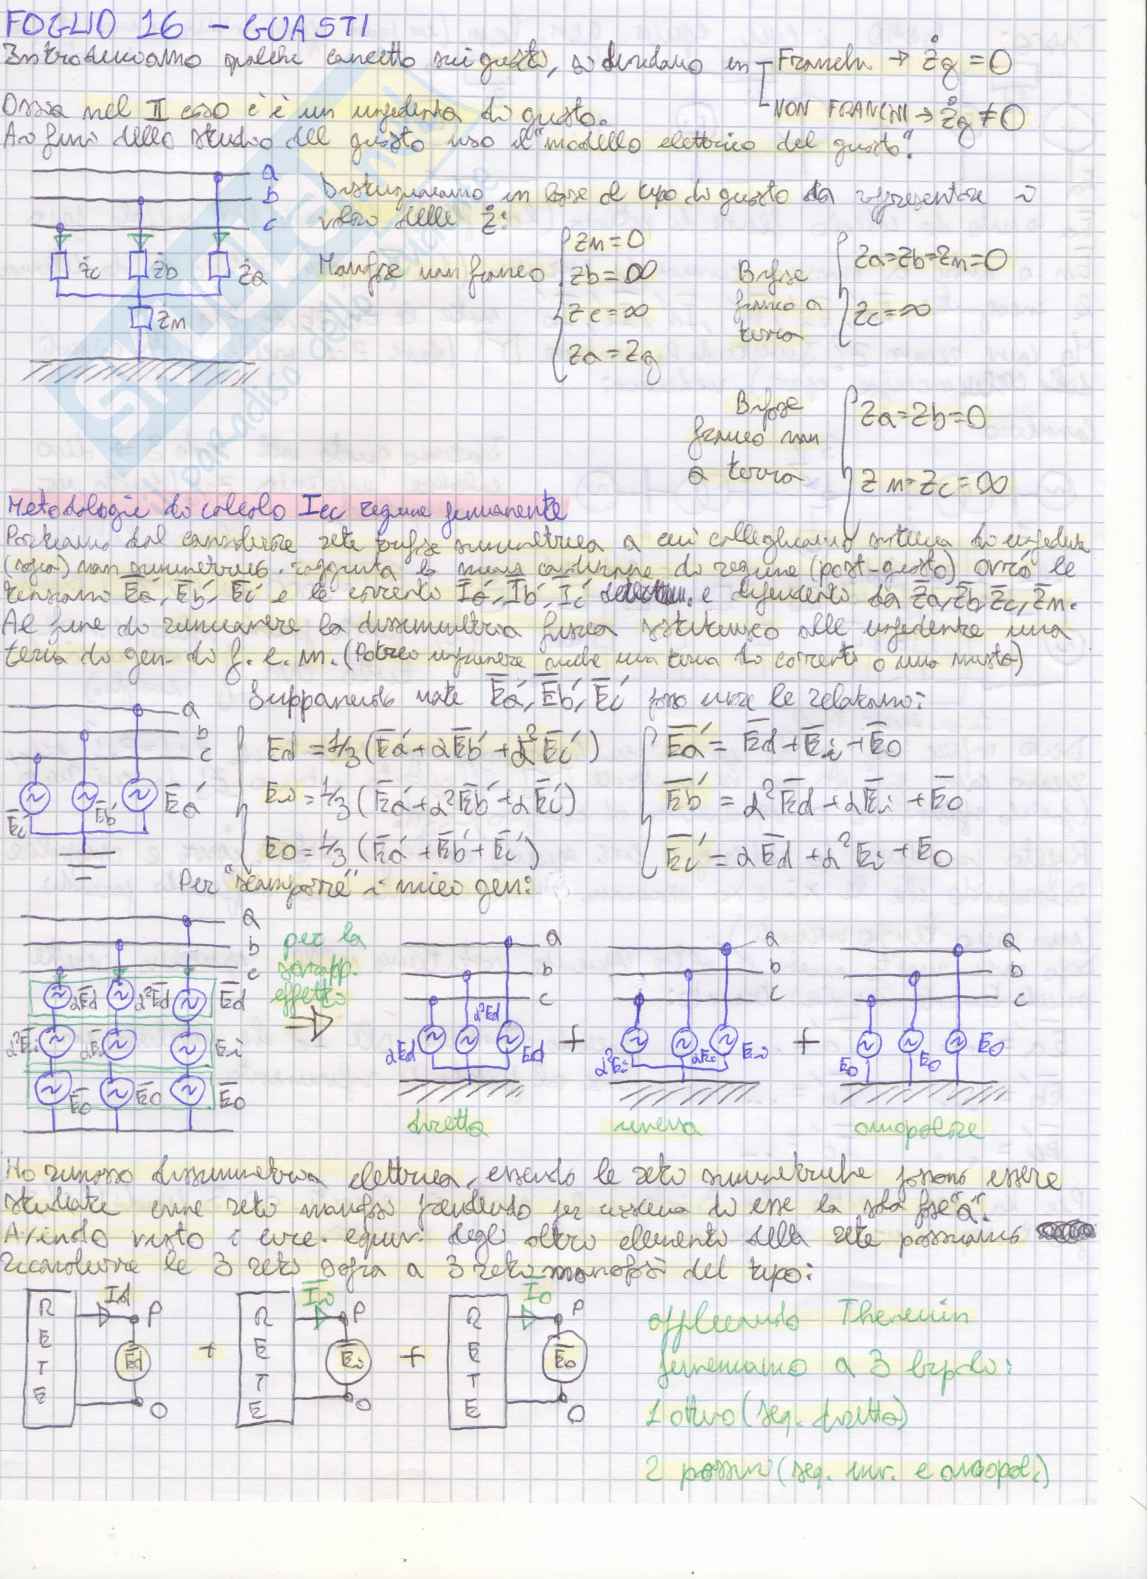 FOGLIO 16 - GUASTI
Introduciamo qualche concetto sui guasti, si dividono in Franchi → Żg = 0
NON FRANCHI → Żg ≠ 0
Ossia nel II caso c'è un impedenza di guasto.
Ai fini dello studio del guasto uso il "modello elettrico del guasto".
a
b
c
Distinguiamo in base al tipo di guasto da rappresentare i
valori delle Ż:
Żc Żb Ża
Zm
Monofase non franco
Zm = 0
Zb = ∞
Zc = ∞
Za = Zg
Bifase franco a terra
Za = Zb = Zm = 0
Zc = ∞
Bifase franco non a terra
Za = Zb = 0
Zm = Zc = ∞
Metodologie di calcolo Icc regime permanente
Partiamo dal considerare rete trifase simmetrica a cui colleghiamo sistema di impedenze
(sopra) non simmetrico. raggiunta la nuova condizione di regime (post-guasto) avrò le
tensioni Ēa', Ēb', Ēc' e le correnti Īa', Īb', Īc' e dipendenti da Z̄a, Z̄b, Z̄c, Z̄m.
Al fine di rimuovere la dissimmetria fisica sostituisco alle impedenze una
terna di gen. di f.e.m. (Potrei imporre anche una terna di correnti o una mista)
Supponendo note Ēa', Ēb', Ēc' sono note le relazioni:
a
b
c
Ēc' Ēb' Ēa'
Ed = 1/3 (Ēa' + αĒb' + α²Ēc')
Ei = 1/3 (Ēa' + α²Ēb' + αĒc')
E0 = 1/3 (Ēa' + Ēb' + Ēc')
Ēa' = Ēd + Ēi + Ē0
Ēb' = α²Ēd + αĒi + Ē0
Ēc' = αĒd + α²Ei + E0
Per "scomporre" i miei gen:
a
b
c
αĒd α²Ēd Ēd
α²Ēi αĒi Ēi
Ē0 Ē0 Ē0
per la
sovrapp.
effetti
a
b
c
αEd α²Ed Ed
+
a
b
c
α²Ei αEi Ei
+
a
b
c
E0 E0 E0
diretta inversa omopolare
Ho rimosso dissimmetria elettrica, essendo le reti simmetriche possono essere
studiate come reti monofasi prendendo per ciascuna di esse la sola fase "a".
Avendo visto i circ. equiv. degli altri elementi della rete possiamo
ricondurre le 3 reti sopra a 3 reti monofasi del tipo:
RETE Id P Ēd O
+
RETE Ii P Ēi O
+
RETE I0 P Ē0 O
applicando Thevenin
perveniamo a 3 bipoli:
1 attivo (seq. diretta)
2 passivi (seq. inv. e omopol.)